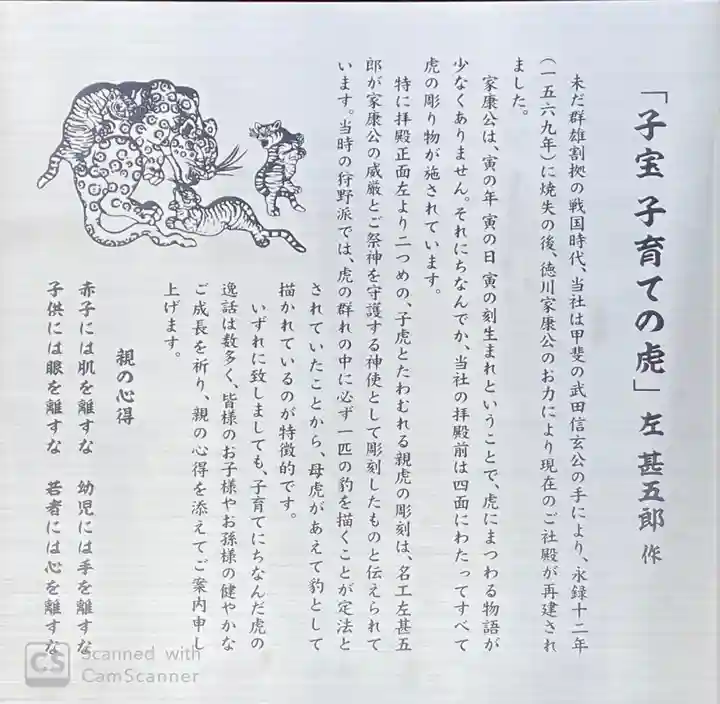 「子宝 子育ての虎」左 甚五郎 作
未だ群雄割拠の戦国時代、当社は甲斐の武田信玄公の手により、永録十二年
(一五六九年)に焼失の後、徳川家康公のお力により現在のご社殿が再建され
ました。
家康公は、寅の年 寅の日 寅の刻生まれということで、虎にまつわる物語が
少なくありません。それにちなんでか、当社の拝殿前は四面にわたってすべて
虎の彫り物が施されています。
特に拝殿正面左より二つめの、子虎とたわむれる親虎の彫刻は、名工左甚五
郎が家康公の威厳とご祭神を守護する神使として彫刻したものと伝えられて
います。当時の狩野派では、虎の群れの中に必ず一匹の豹を描くことが定法と
されていたことから、母虎があえて豹として
描かれているのが特徴的です。
いずれに致しましても、子育てにちなんだ虎の
逸話は数多く、皆様のお子様やお孫様の健やかな
ご成長を祈り、親の心得を添えてご案内申し
上げます。
親の心得
赤子には肌を離すな 幼児には手を離すな
子供には眼を離すな 若者には心を離すな
CS Scanned with
CamScanner